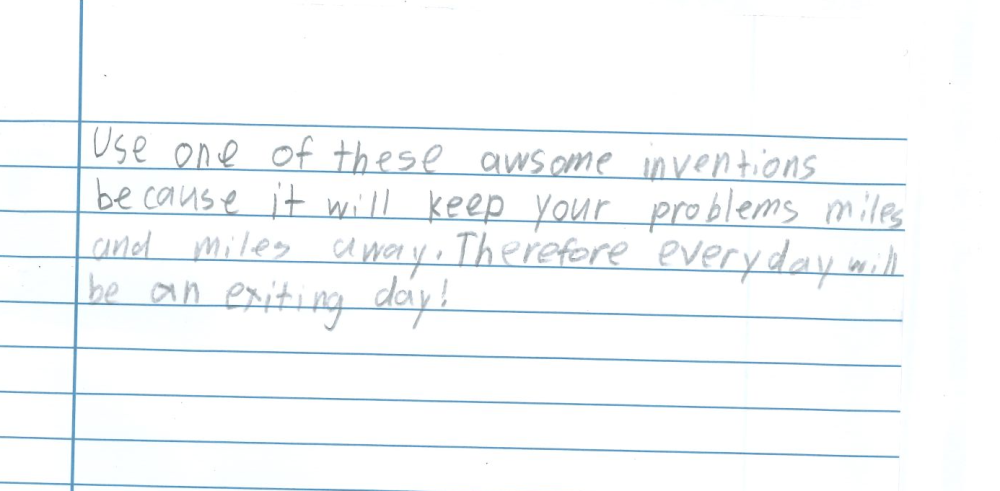 Use one of these awsome inventions
because it will keep your problems miles
and miles away. Therefore everyday will
be an exiting day!